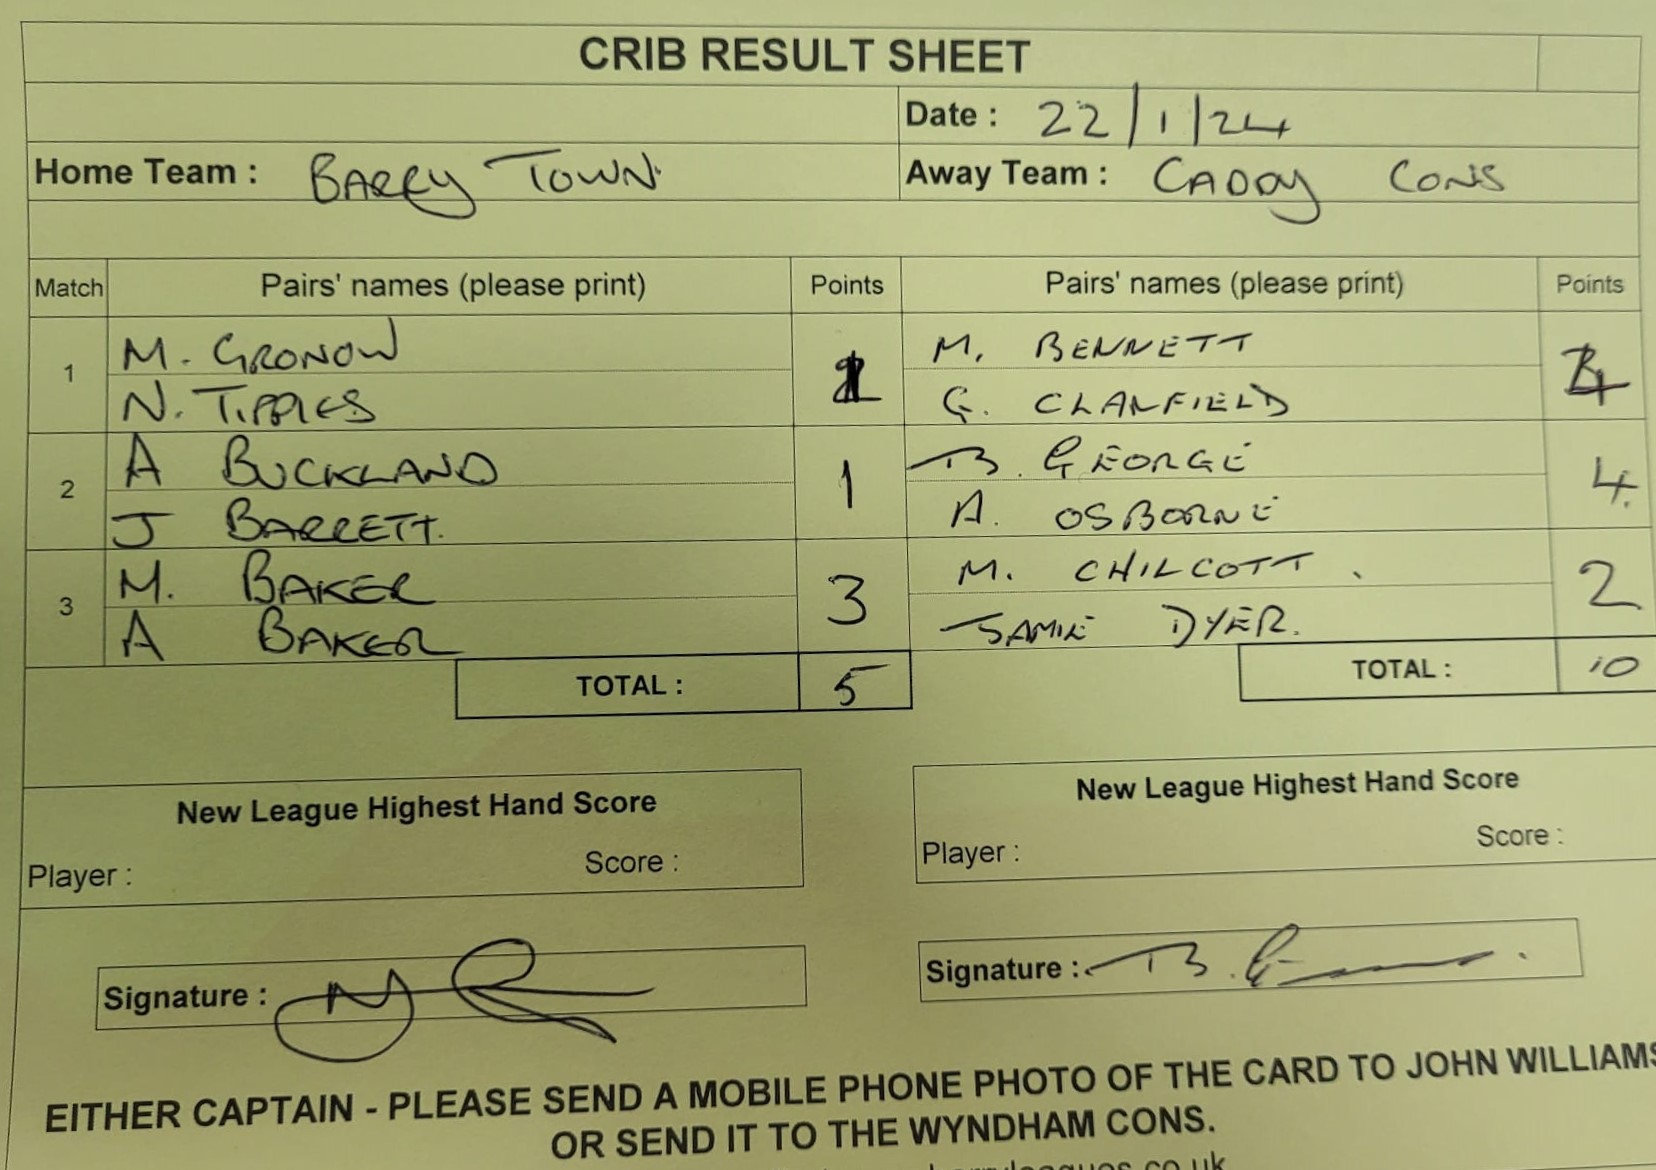 CRIB RESULT SHEET
Date : 22/1/24
Home Team : BARRY TOWN Away Team : CADDY CONS
Match Pairs' names (please print) Points Pairs' names (please print) Points
1 M. GRONOW 1 M. BENNETT 4
N. TIPPLES G. CLANFIELD
2 A BUCKLAND 1 B. GEORGE 4
J BARRETT. A. OSBORNE
3 M. BAKER 3 M. CHILCOTT 2
A BAKER JAMIE DYER.
TOTAL : 5 TOTAL : 10
New League Highest Hand Score New League Highest Hand Score
Player : Score : Player : Score :
Signature : Signature : B. G
EITHER CAPTAIN - PLEASE SEND A MOBILE PHONE PHOTO OF THE CARD TO JOHN WILLIAMS
OR SEND IT TO THE WYNDHAM CONS.